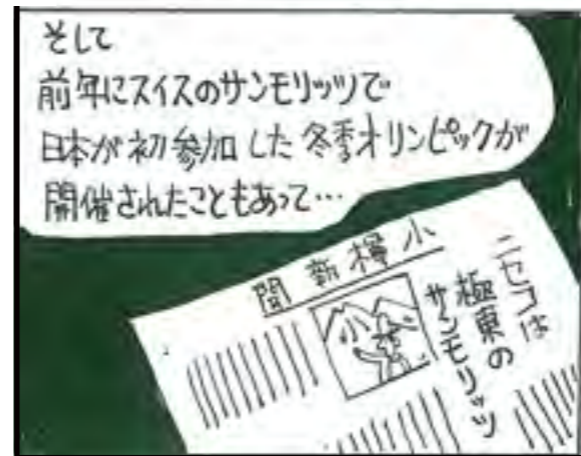 そして
前年にスイスのサンモリッツで
日本が初参加した冬季オリンピックが
開催されたこともあって…
小樽新聞
ニセコは
極東の
サンモリッツ